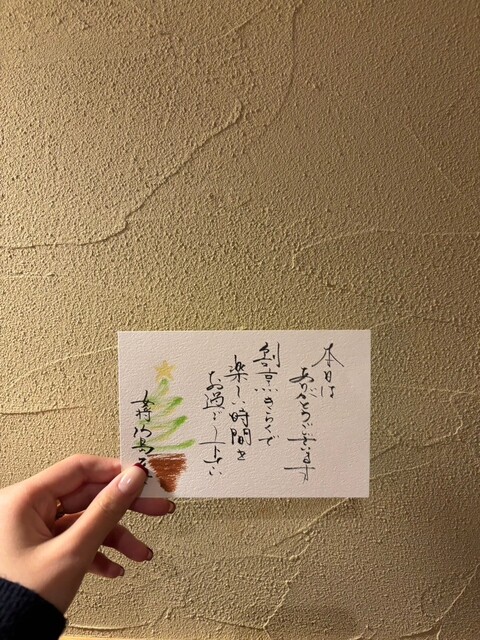 本日は
ありがとうございます
割烹きらくで
楽しい時間を
お過ごし下さい
女将